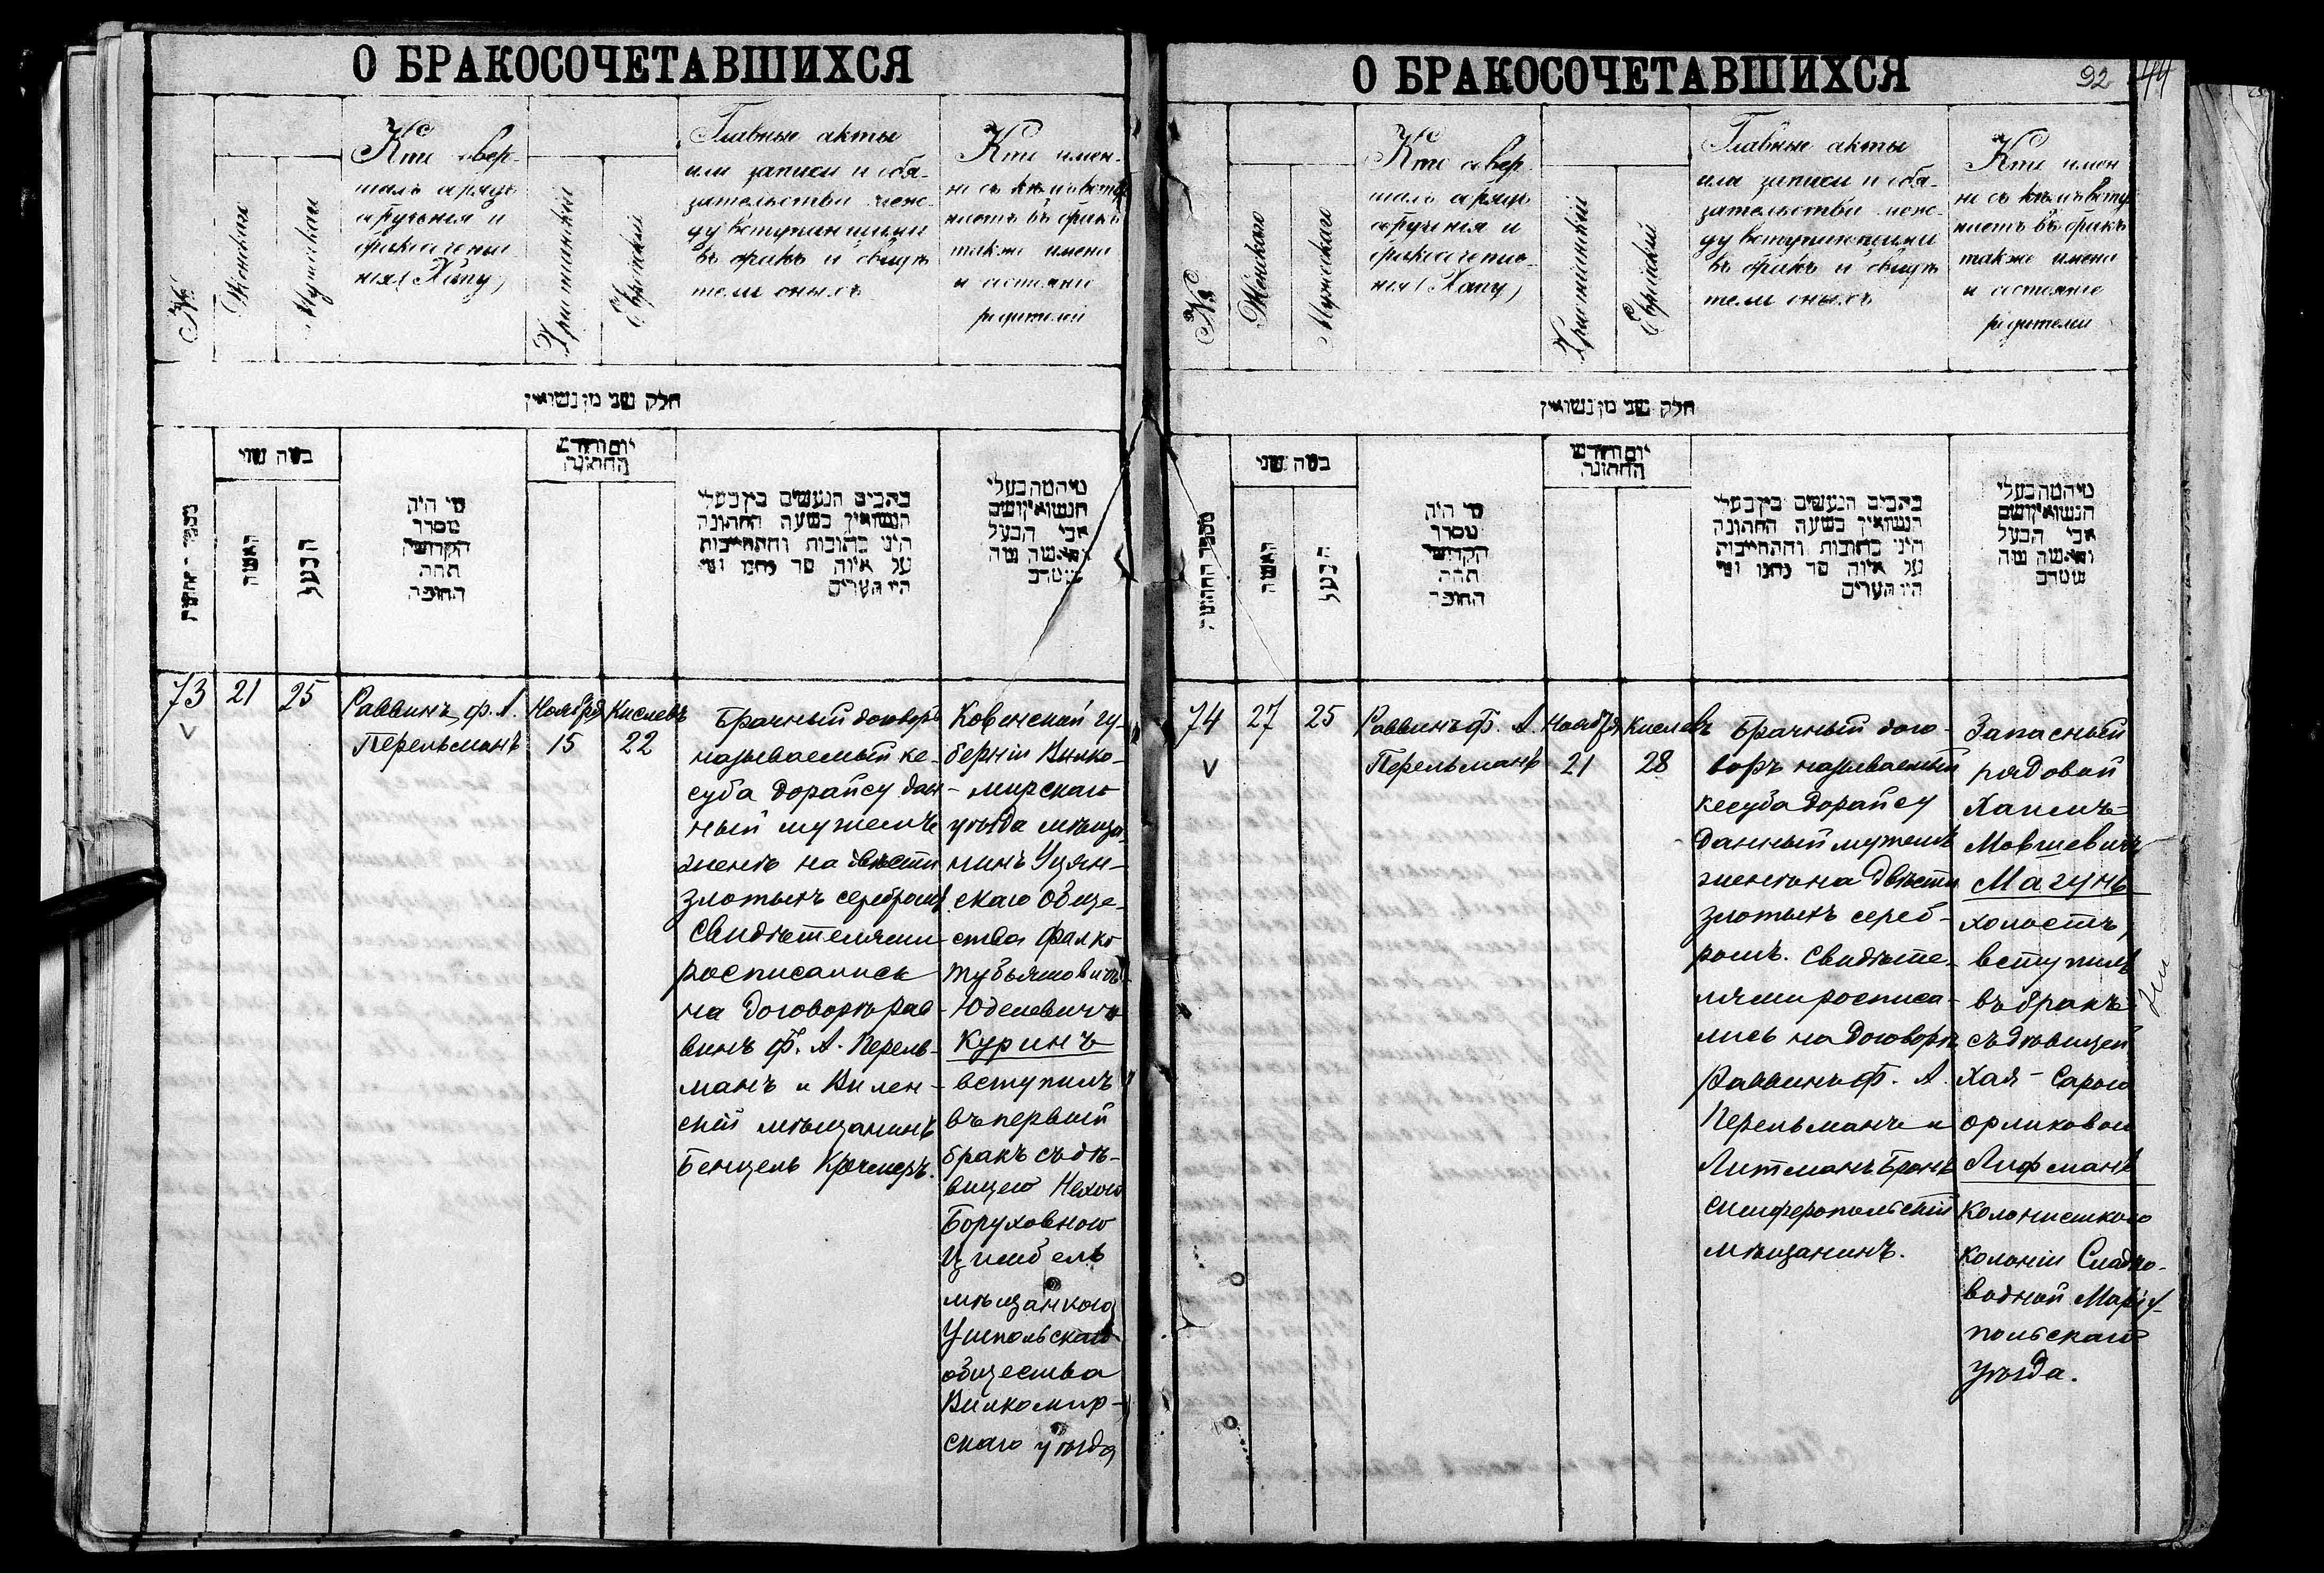 О БРАКОСОЧЕТАВШИХСЯ
№
Женскаго
Мужескаго
Кто совер-
шалъ обрядъ
обрученія и
бракосочета-
нія (Хупу)
Христіанскій
Еврейскій
Главные акты
или записи и обя-
зательства меж-
ду вступающими
въ бракъ и свидѣ
тели оныхъ
Кто имен-
но съ кѣмъ всту
паетъ въ бракъ
также имена
и состояніе
родителей
חלק שני מן נשואין
האשה
הבעל
מי היה
מסדר
הקדושין
תחת
החופה
יום וחדש
החתונה
כתבים הנעשים בין בעלי
הנשואין בשעה החתונה
היני כתובות והתחייבות
על איזה סך נתנו ומי
היו העדים
73
21
25
Раввинъ ф. А.
Перельманъ
Ноября
15
Кислевъ
22
Брачный договоръ
называемый ке-
суба дорайсу дан-
ный мужемъ
женѣ на двѣсти
злотыхъ серебромъ
Свидѣтелями
росписались
на договорѣ рав-
винъ Ф. А. Перель-
манъ и Вилен-
скій мѣщанинъ
Бенцель Кремеръ.
Ковенской гу-
берніи Вилко-
мирскаго
уѣзда мѣща-
нинъ Уцян-
скаго Обще-
ства Фалко
Тубьяшовичъ
Юделевичъ
Куринъ
вступилъ
въ первый
бракъ съ дѣ-
вицею Нехою
Боруховною
Цимбель
мѣщанкою
Ушпольскаго
общества
Вилкомир-
скаго уѣзда
О БРАКОСОЧЕТАВШИХСЯ
92
44
№
Женскаго
Мужескаго
Кто совер-
шалъ обрядъ
обрученія и
бракосочета-
нія (Хупу)
Христіанскій
Еврейскій
Главные акты
или записи и обя-
зательства меж-
ду вступающими
въ бракъ и свидѣ
тели оныхъ
Кто имен
но съ кѣмъ всту
паетъ въ бракъ
также имена
и состояніе
родителей
חלק שני מן נשואין
האשה
הבעל
מי היה
מסדר
הקדושין
תחת
החופה
יום וחדש
החתונה
כתבים הנעשים בין בעלי
הנשואין בשעה החתונה
היני כתובות והתחייבות
על איזה סך נתנו ומי
היו העדים
74
27
25
Раввинъ Ф. А.
Перельманъ
Ноября
21
Кислевъ
28
Брачный дого-
воръ называемый
кесуба дорайсу
данный мужемъ
женѣ на двѣсти
злотыхъ сереб-
ромъ. Свидѣте-
лями росписа-
лись на договорѣ
Раввинъ Ф. А.
Перельманъ и
Литманъ Бронъ
симферопольскій
мѣщанинъ.
Запасный
рядовой
Хаимъ
Мовшевичъ
Магунъ
холостъ,
вступилъ
въ бракъ
съ дѣвицей
Хая-Сарою
Орликовой
Лифманъ
Колонисткою
колоніи Сладко-
водной Маріу-
польскаго
уѣзда.